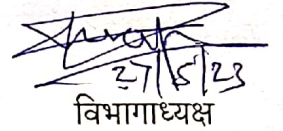 27/5/23
विभागाध्यक्ष